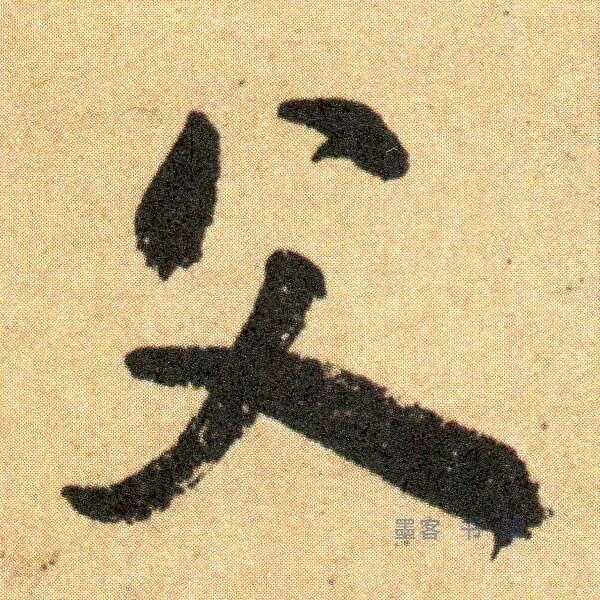 父
墨客 书